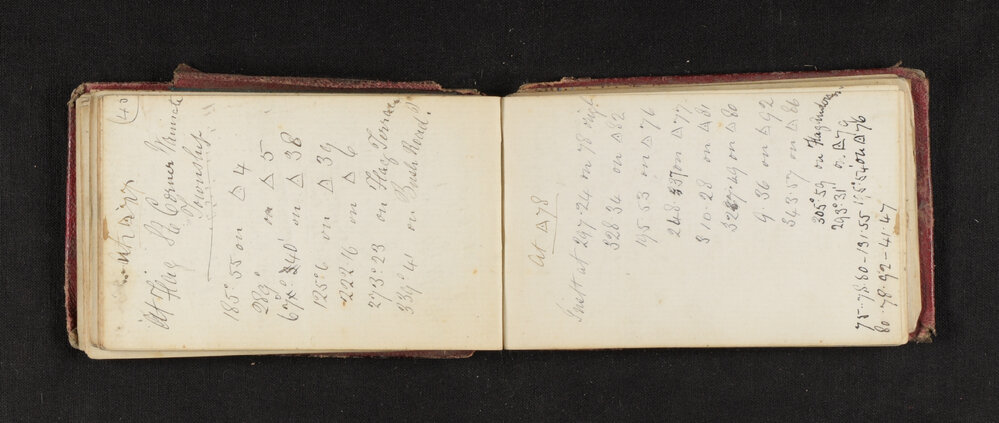 (40)
At Δ 27
At Flag SE Corner
Township
185° 55 on Δ 4
289° on Δ 5
67° 40' on Δ 38
125° 6 on Δ 39
222° 16 on Δ 6
273° 23 on Flag
339° 41 on Bush Road
At Δ 78
Inst at 297.24 on 78
328 34 on Δ 82
195.53 on Δ 76
248.337 on Δ 77
310.28 on Δ 81
3287.29 on Δ 80
9.36 on Δ 92
343.57 on Δ 86
305° 59 on Flag
293° 31' on Δ 79
75.78.80 – 131.55 195° 54 on Δ 76
80.78.92 – 41.47